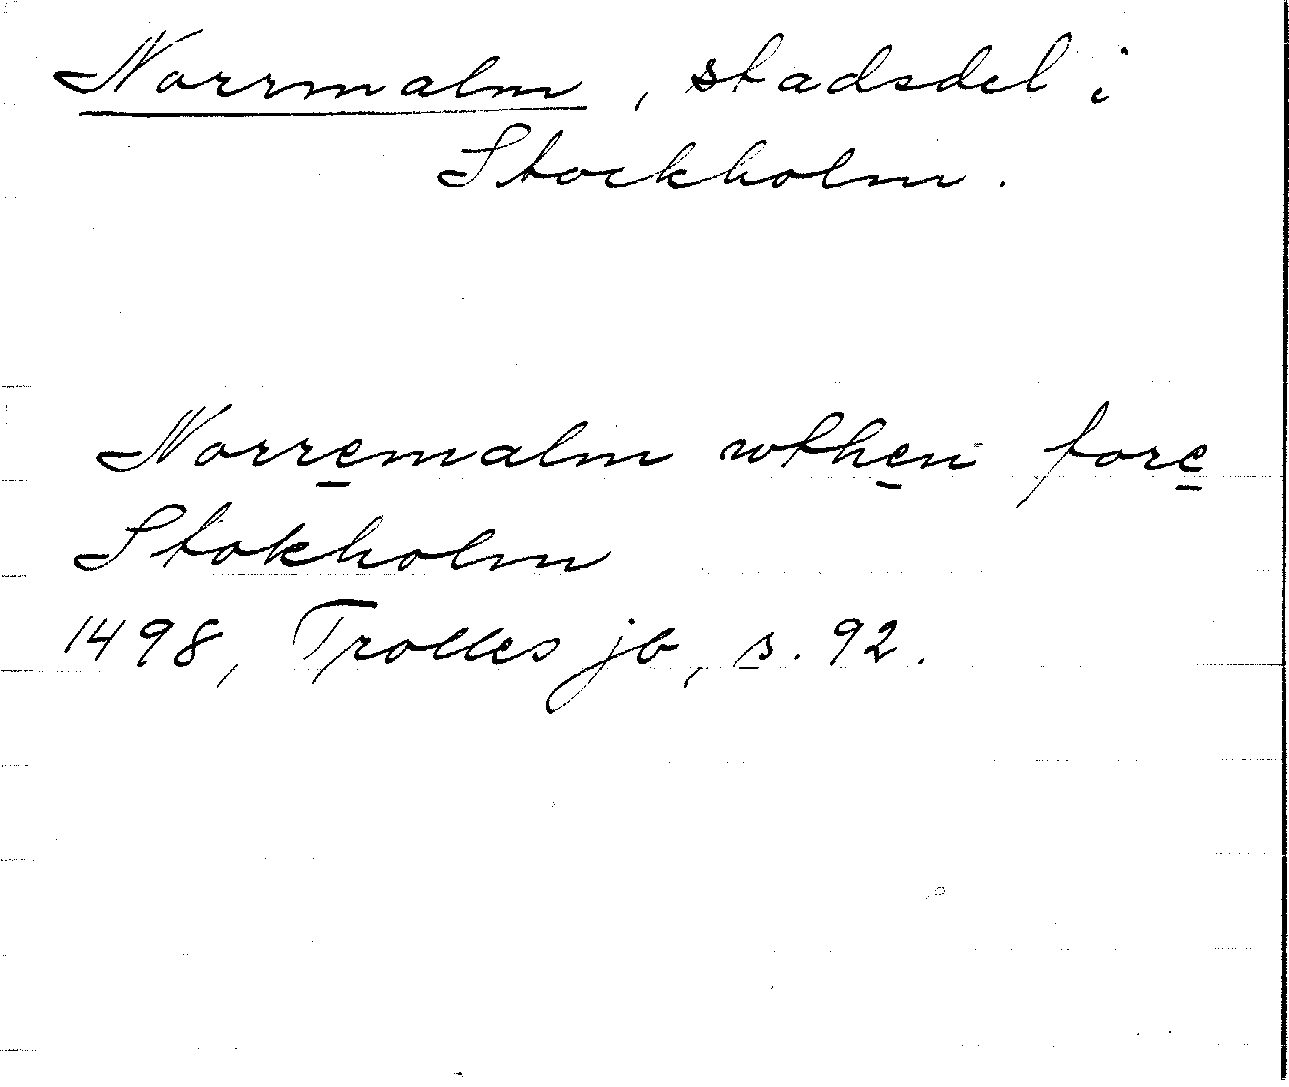 Norrmalm, stadsdel i
Stockholm.
Norremalm wthen fore
Stokholm
1498, Trolles jb, s. 92.